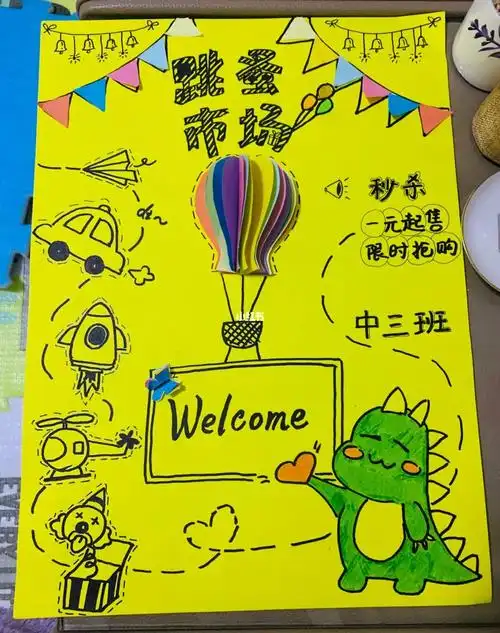 跳蚤
市场
秒杀
一元起售
限时抢购
中三班
小红书
Welcome
EVERY